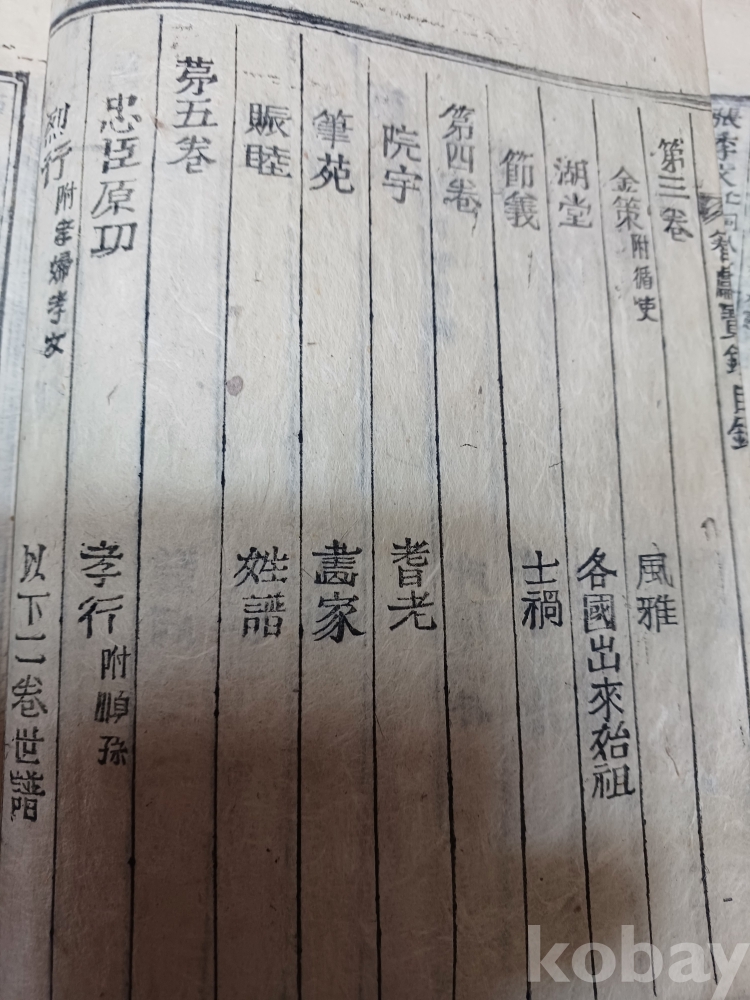 目錄
第三卷
金策 附循吏 風雅
湖堂 各國出來始祖
節義 士禍
第四卷
院宇 耆老
筆苑 畵家
賑睦 姓譜
第五卷
忠臣原功 孝行 附順孫
烈行 附孝婦孝女 以下二卷世譜
kobay